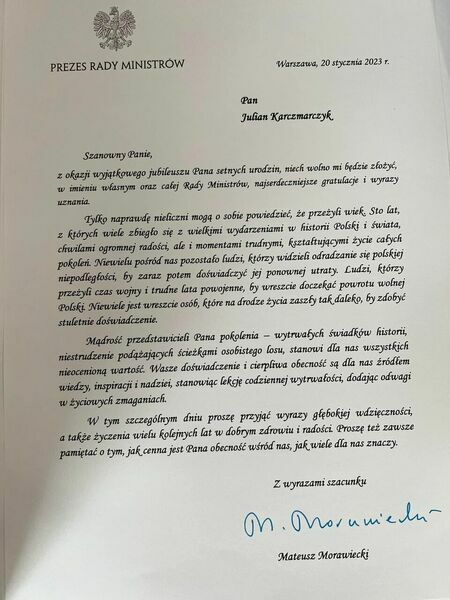 PREZES RADY MINISTRÓW
Warszawa, 20 stycznia 2023 r.
Pan
Julian Karczmarczyk
Szanowny Panie,
z okazji wyjątkowego jubileuszu Pana setnych urodzin, niech wolno mi będzie złożyć,
w imieniu własnym oraz całej Rady Ministrów, najserdeczniejsze gratulacje i wyrazy
uznania.
Tylko naprawdę nieliczni mogą o sobie powiedzieć, że przeżyli wiek. Sto lat,
z których wiele zbiegło się z wielkimi wydarzeniami w historii Polski i świata,
chwilami ogromnej radości, ale i momentami trudnymi, kształtującymi życie całych
pokoleń. Niewielu pośród nas pozostało ludzi, którzy widzieli odradzanie się polskiej
niepodległości, by zaraz potem doświadczyć jej ponownej utraty. Ludzi, którzy
przeżyli czas wojny i trudne lata powojenne, by wreszcie doczekać powrotu wolnej
Polski. Niewiele jest wreszcie osób, które na drodze życia zaszły tak daleko, by zdobyć
stuletnie doświadczenie.
Mądrość przedstawicieli Pana pokolenia – wytrwałych świadków historii,
niestrudzenie podążających ścieżkami osobistego losu, stanowi dla nas wszystkich
nieocenioną wartość. Wasze doświadczenie i cierpliwa obecność są dla nas źródłem
wiedzy, inspiracji i nadziei, stanowiąc lekcję codziennej wytrwałości, dodając odwagi
w życiowych zmaganiach.
W tym szczególnym dniu proszę przyjąć wyrazy głębokiej wdzięczności,
a także życzenia wielu kolejnych lat w dobrym zdrowiu i radości. Proszę też zawsze
pamiętać o tym, jak cenna jest Pana obecność wśród nas, jak wiele dla nas znaczy.
Z wyrazami szacunku
M. Morawiecki
Mateusz Morawiecki